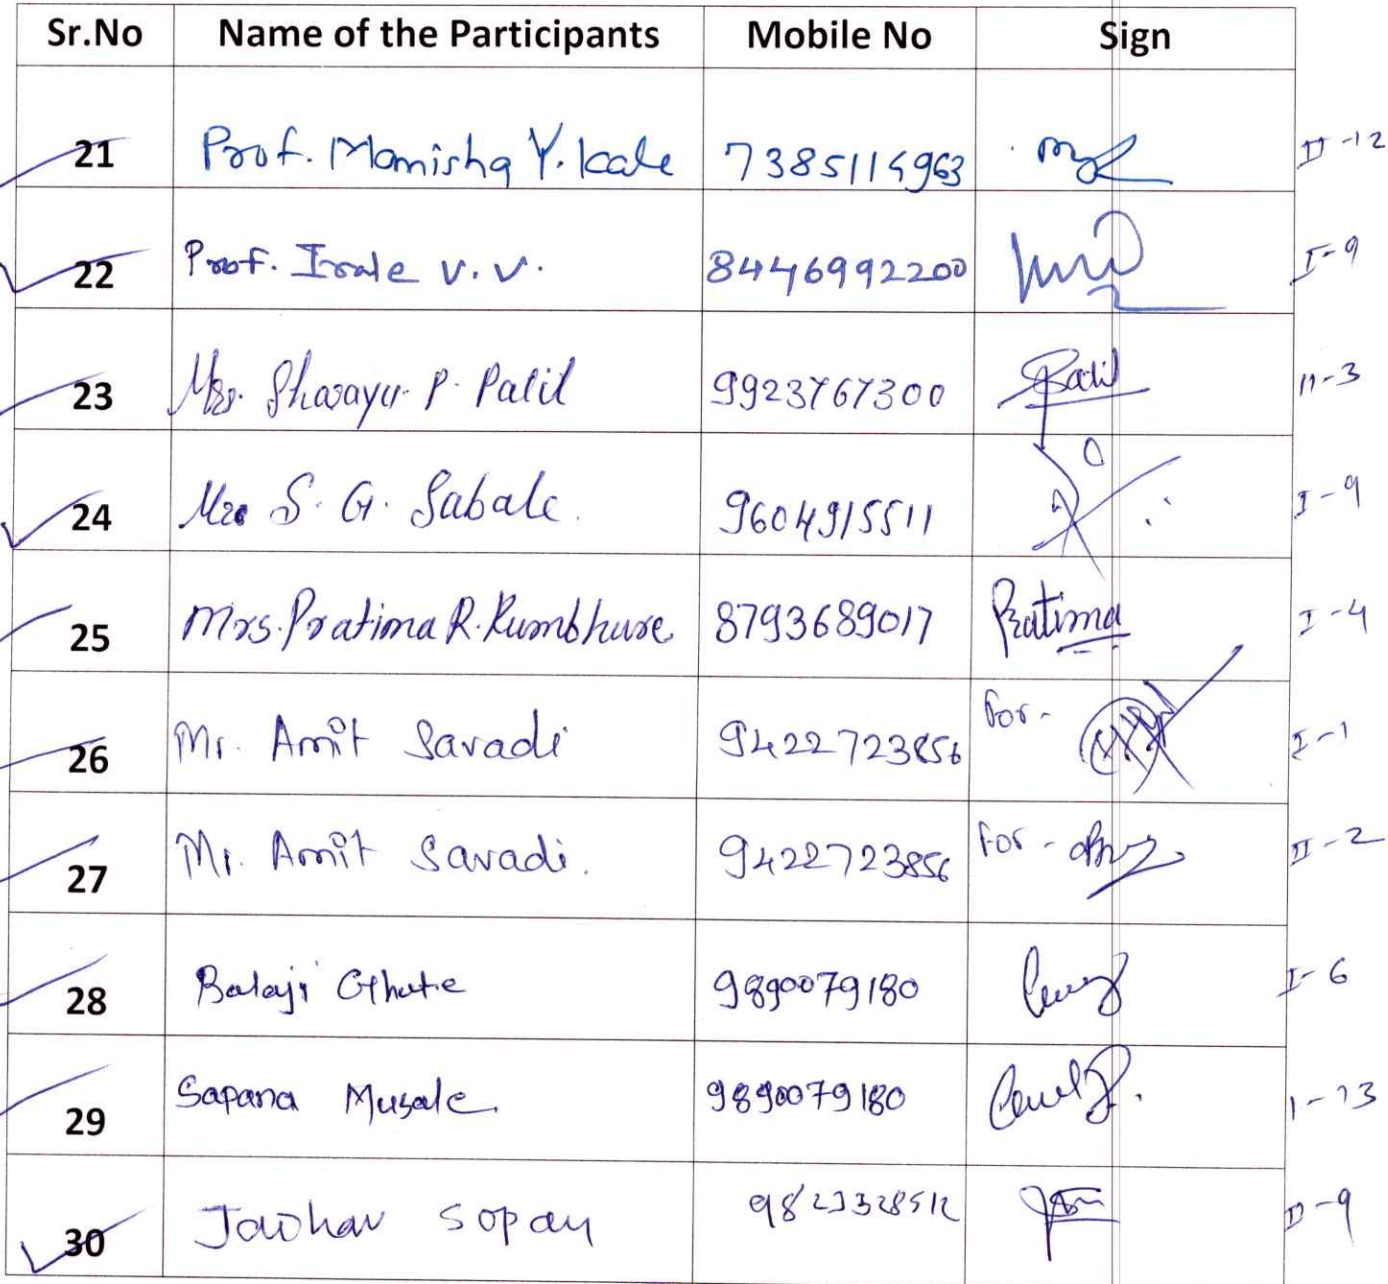 Sr.No Name of the Participants Mobile No Sign
21 Prof. Manisha Y. Kale 7385114963 II-12
22 Prof. Irale V.V. 8446992200 I-9
23 Mrs. Sharayu P. Patil 9923767300 Patil II-3
24 Mrs S. G. Sabale. 9604915511 I-9
25 Mrs. Pratima R. Kumbhare 8793689017 Pratima I-4
26 Mr. Amit Savadi 9422723856 For- I-1
27 Mr. Amit Savadi. 9422723856 For- II-2
28 Balaji Ghute 9890079180 I-6
29 Sapana Musale. 9890079180 I-13
30 Jadhav Sopan 9823328512 II-9